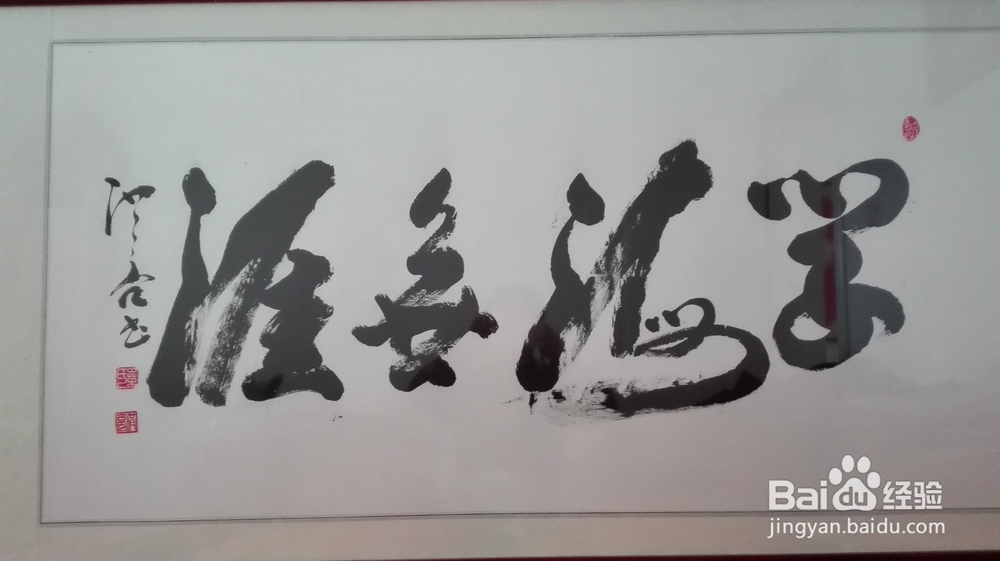 學海無涯
Baidu经验
jingyan.baidu.com